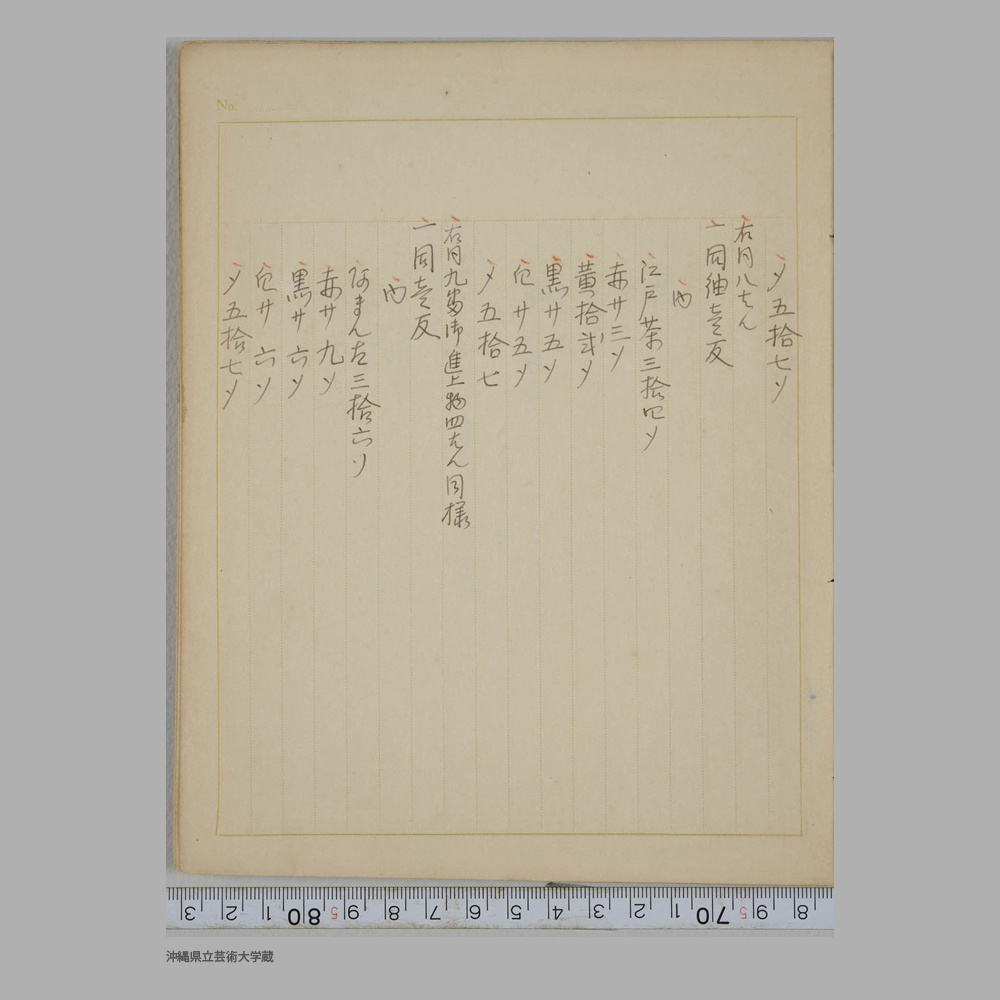 No.
〆五拾七ソ
右同八たん
一同紬壱反
内
江戸茶三拾四ソ
赤廿三ソ
黄拾弐ソ
黒廿五ソ
白廿五ソ
〆五拾七
右同九番御進上物四たん同様
一同壱反
内
赤廿九ソ
黒廿六ソ
白廿六ソ
〆五拾七ソ
3 2 1 80 5 9 8 7 6 5 4 3 2 1 70 5 9 8
沖縄県立芸術大学蔵